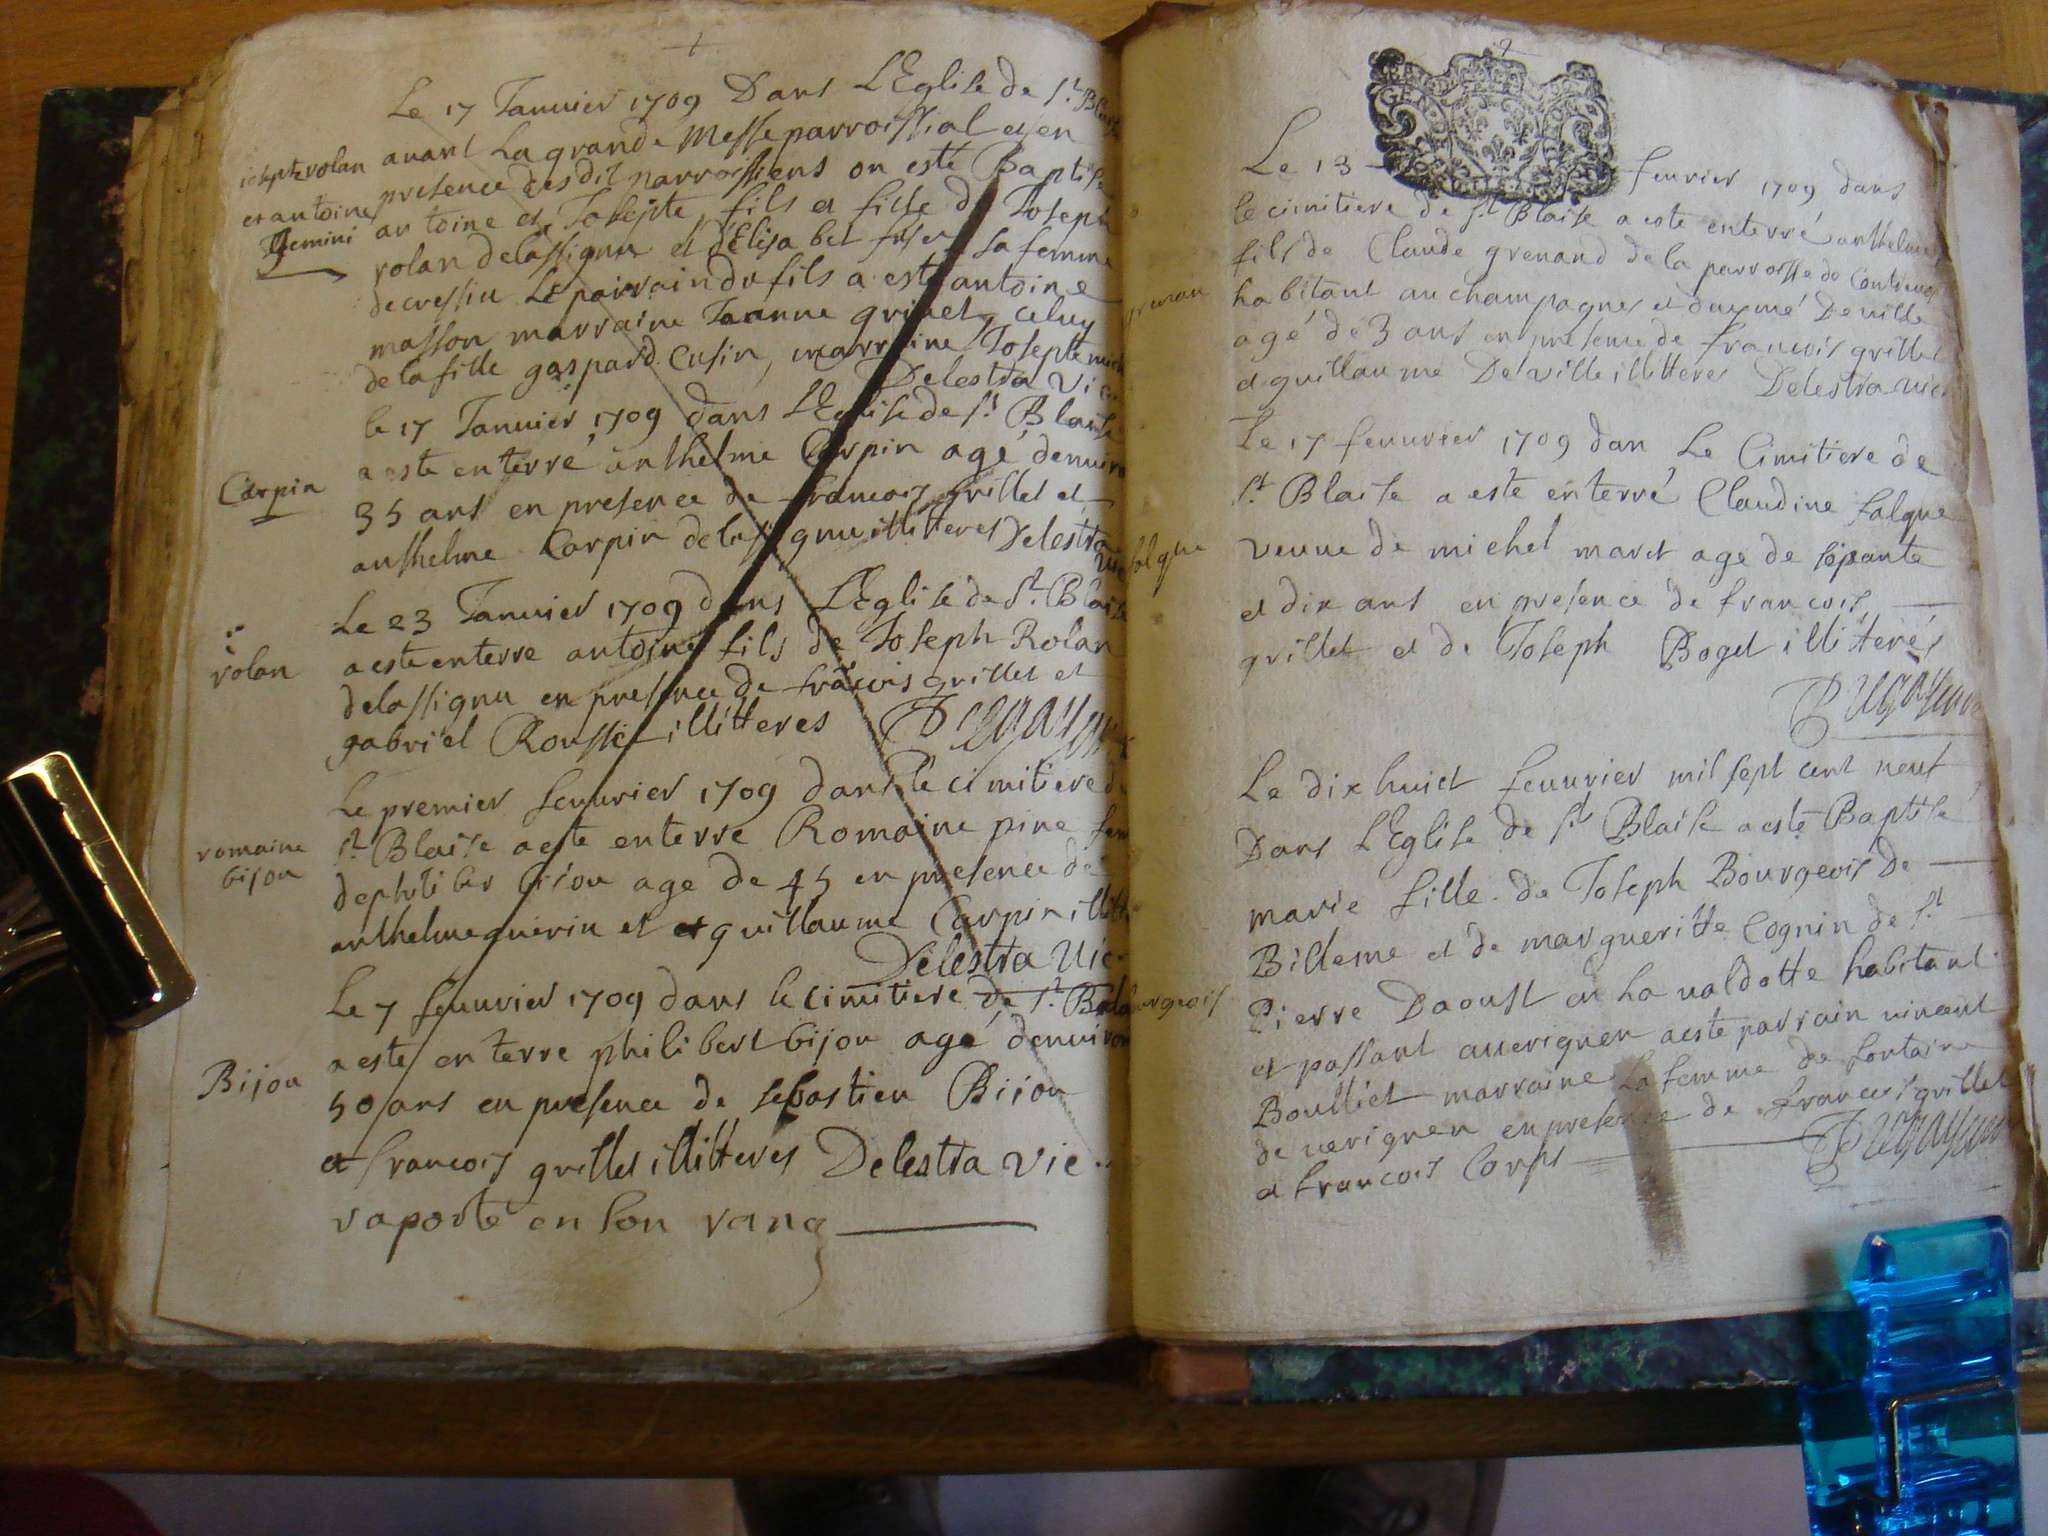 Le 17 Januier 1709 Dans L'Eglise de St. Blaise
auant La grande Messe parroissial et en
presence desdit parroissiens on esté Baptisé
antoine et Josepte fils et fille de Joseph
rolan delassignu et d'Elisabet sa femme
decressiu Le parrain du fils a esté antoine
masson marraine Jeanne grillet, celuy
de la fille gaspard Cusin, marraine Josepte
Delestra Vic
iosepte rolan
et antoine
Jemini
le 17 Januier 1709 dans L'Eglise de St Blaise
a este enterré anthelme Carpin agé denuiron
35 ans en presence de francois grillet et
anthelme Carpin delassignu illitteres Delestra
vic
Carpin
Le 23 Januier 1709 dans L'Eglise de St. Blaise
a este enterre antoine fils de Joseph Rolan
delassignu en presence de fracois grillet et
gabriel Rousset illitteres
rolan
Le premier feuurier 1709 dans le cimitiere de
St. Blaise a este enterre Romaine pine fem
de philiber bijou age de 45 en presence de
anthelme guerin et et guillaume Carpin illitte
Delestra Vic
romaine
bijou
Le 7 feuurier 1709 dans le cimitiere de St. Blaise
a este enterre philibert bijou agé denuiron
50 ans en presence de sebastien Bijou
et francois grillet illitteres Delestra vic.
Bijou
raporté en son rang
2
GEN
Le 13 feurier 1709 dans
le cimitiere de St Blaise a este enterré anthelme
fils de Claude grenand de la parroisse de
habitant au champagnes et daymé Deuille
agé de 3 ans en presence de francois grillet
et guillaume Deville illitteres Delestra vic
Le 17 feuurier 1709 dan Le Cimitiere de
St. Blaise a este enterré Claudine falque
veuue de michel maret age de sepante
et dix ans en presence de francois
grillet et de Joseph Boget illitterés
falque
Le dix huict feuurier mil sept cent neuf
Dans L'Eglise de St Blaise a esté Baptisé
marie fille de Joseph Bourgeois De
Billeme et de margueritte Cognin de St
Pierre Daoust en La valdotte habitant
et passant auerignen a este parrain vincent
Boulliet marraine La femme de fontaine
de verignen en presence de francois grillet
et francois Corps
bourgeois